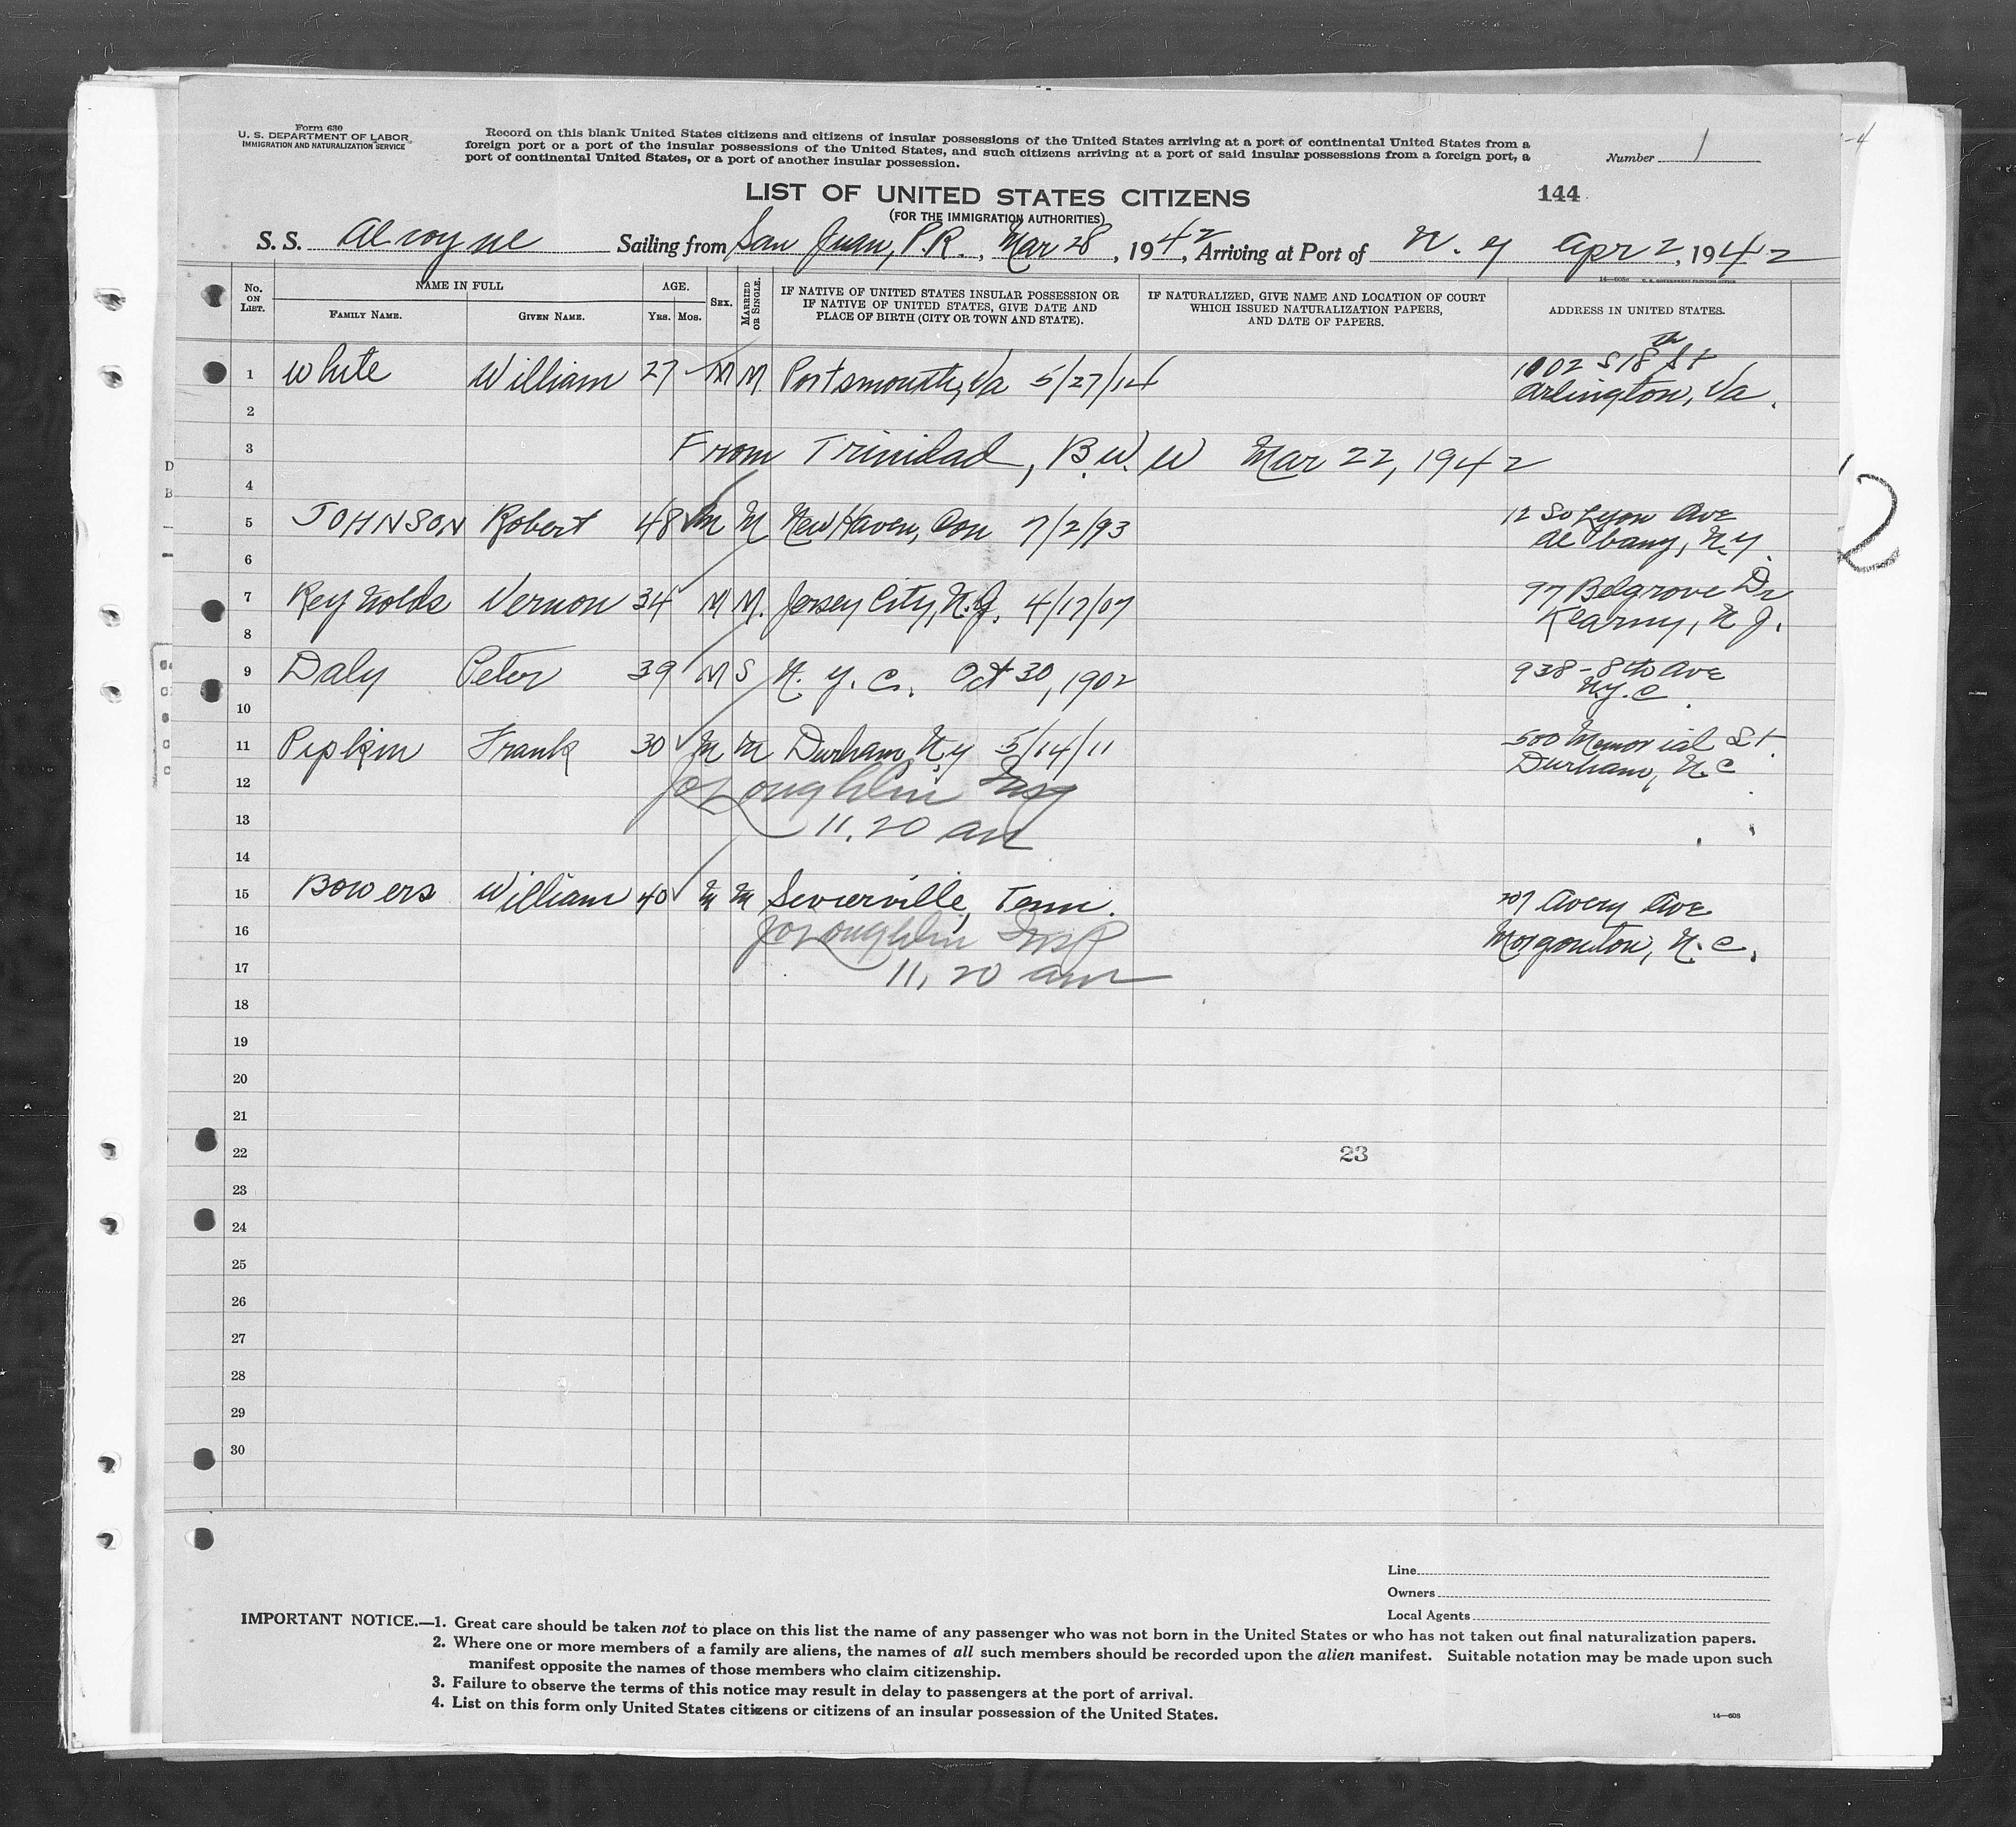 Form 630
U. S. DEPARTMENT OF LABOR
IMMIGRATION AND NATURALIZATION SERVICE
Record on this blank United States citizens and citizens of insular possessions of the United States arriving at a port of continental United States from a
foreign port or a port of the insular possessions of the United States, and such citizens arriving at a port of said insular possessions from a foreign port, a
port of continental United States, or a port of another insular possession.
Number 1
LIST OF UNITED STATES CITIZENS
144
(FOR THE IMMIGRATION AUTHORITIES)
S. S. Alcoyne Sailing from San Juan, P.R., Mar 28, 1942, Arriving at Port of N. Y Apr 2, 1942
14—608
No. ON LIST.
NAME IN FULL
FAMILY NAME.
GIVEN NAME.
AGE.
YRS.
MOS.
SEX.
MARRIED OR SINGLE.
IF NATIVE OF UNITED STATES INSULAR POSSESSION OR
IF NATIVE OF UNITED STATES, GIVE DATE AND
PLACE OF BIRTH (CITY OR TOWN AND STATE).
IF NATURALIZED, GIVE NAME AND LOCATION OF COURT
WHICH ISSUED NATURALIZATION PAPERS,
AND DATE OF PAPERS.
ADDRESS IN UNITED STATES.
1 White William 27 M M. Portsmouth, Va 5/27/14 1002 S 18th St
2 Arlington, Va.
3 From Trinidad, B.W. W Mar 22, 1942
4
5 JOHNSON Robert 48 M M New Haven, Con 7/2/93 12 So Lyon Ave
6 Albany, N.Y.
7 Reynolds Vernon 34 M M. Jersey City, N.J. 4/17/07 97 Belgrove Dr
8 Kearny, N.J.
9 Daly Peter 39 M S N. Y. C. Oct 30, 1902 938-8th Ave
10 N.Y.C.
11 Pipkin Frank 30 M M Durham, N.Y 5/14/11 500 Memorial St.
12 Durham, N.C
JoLoughlin Insp
13 11.20 am
14
15 Bowers William 40 M M Sevierville, Tenn. 207 Avery Ave
16 JoLoughlin Insp Morganton, N.C.
17 11.20 am
18
19
20
21
22 23
23
24
25
26
27
28
29
30
2
Line
Owners
Local Agents
IMPORTANT NOTICE.—1. Great care should be taken not to place on this list the name of any passenger who was not born in the United States or who has not taken out final naturalization papers.
2. Where one or more members of a family are aliens, the names of all such members should be recorded upon the alien manifest. Suitable notation may be made upon such
manifest opposite the names of those members who claim citizenship.
3. Failure to observe the terms of this notice may result in delay to passengers at the port of arrival.
4. List on this form only United States citizens or citizens of an insular possession of the United States.
14—608